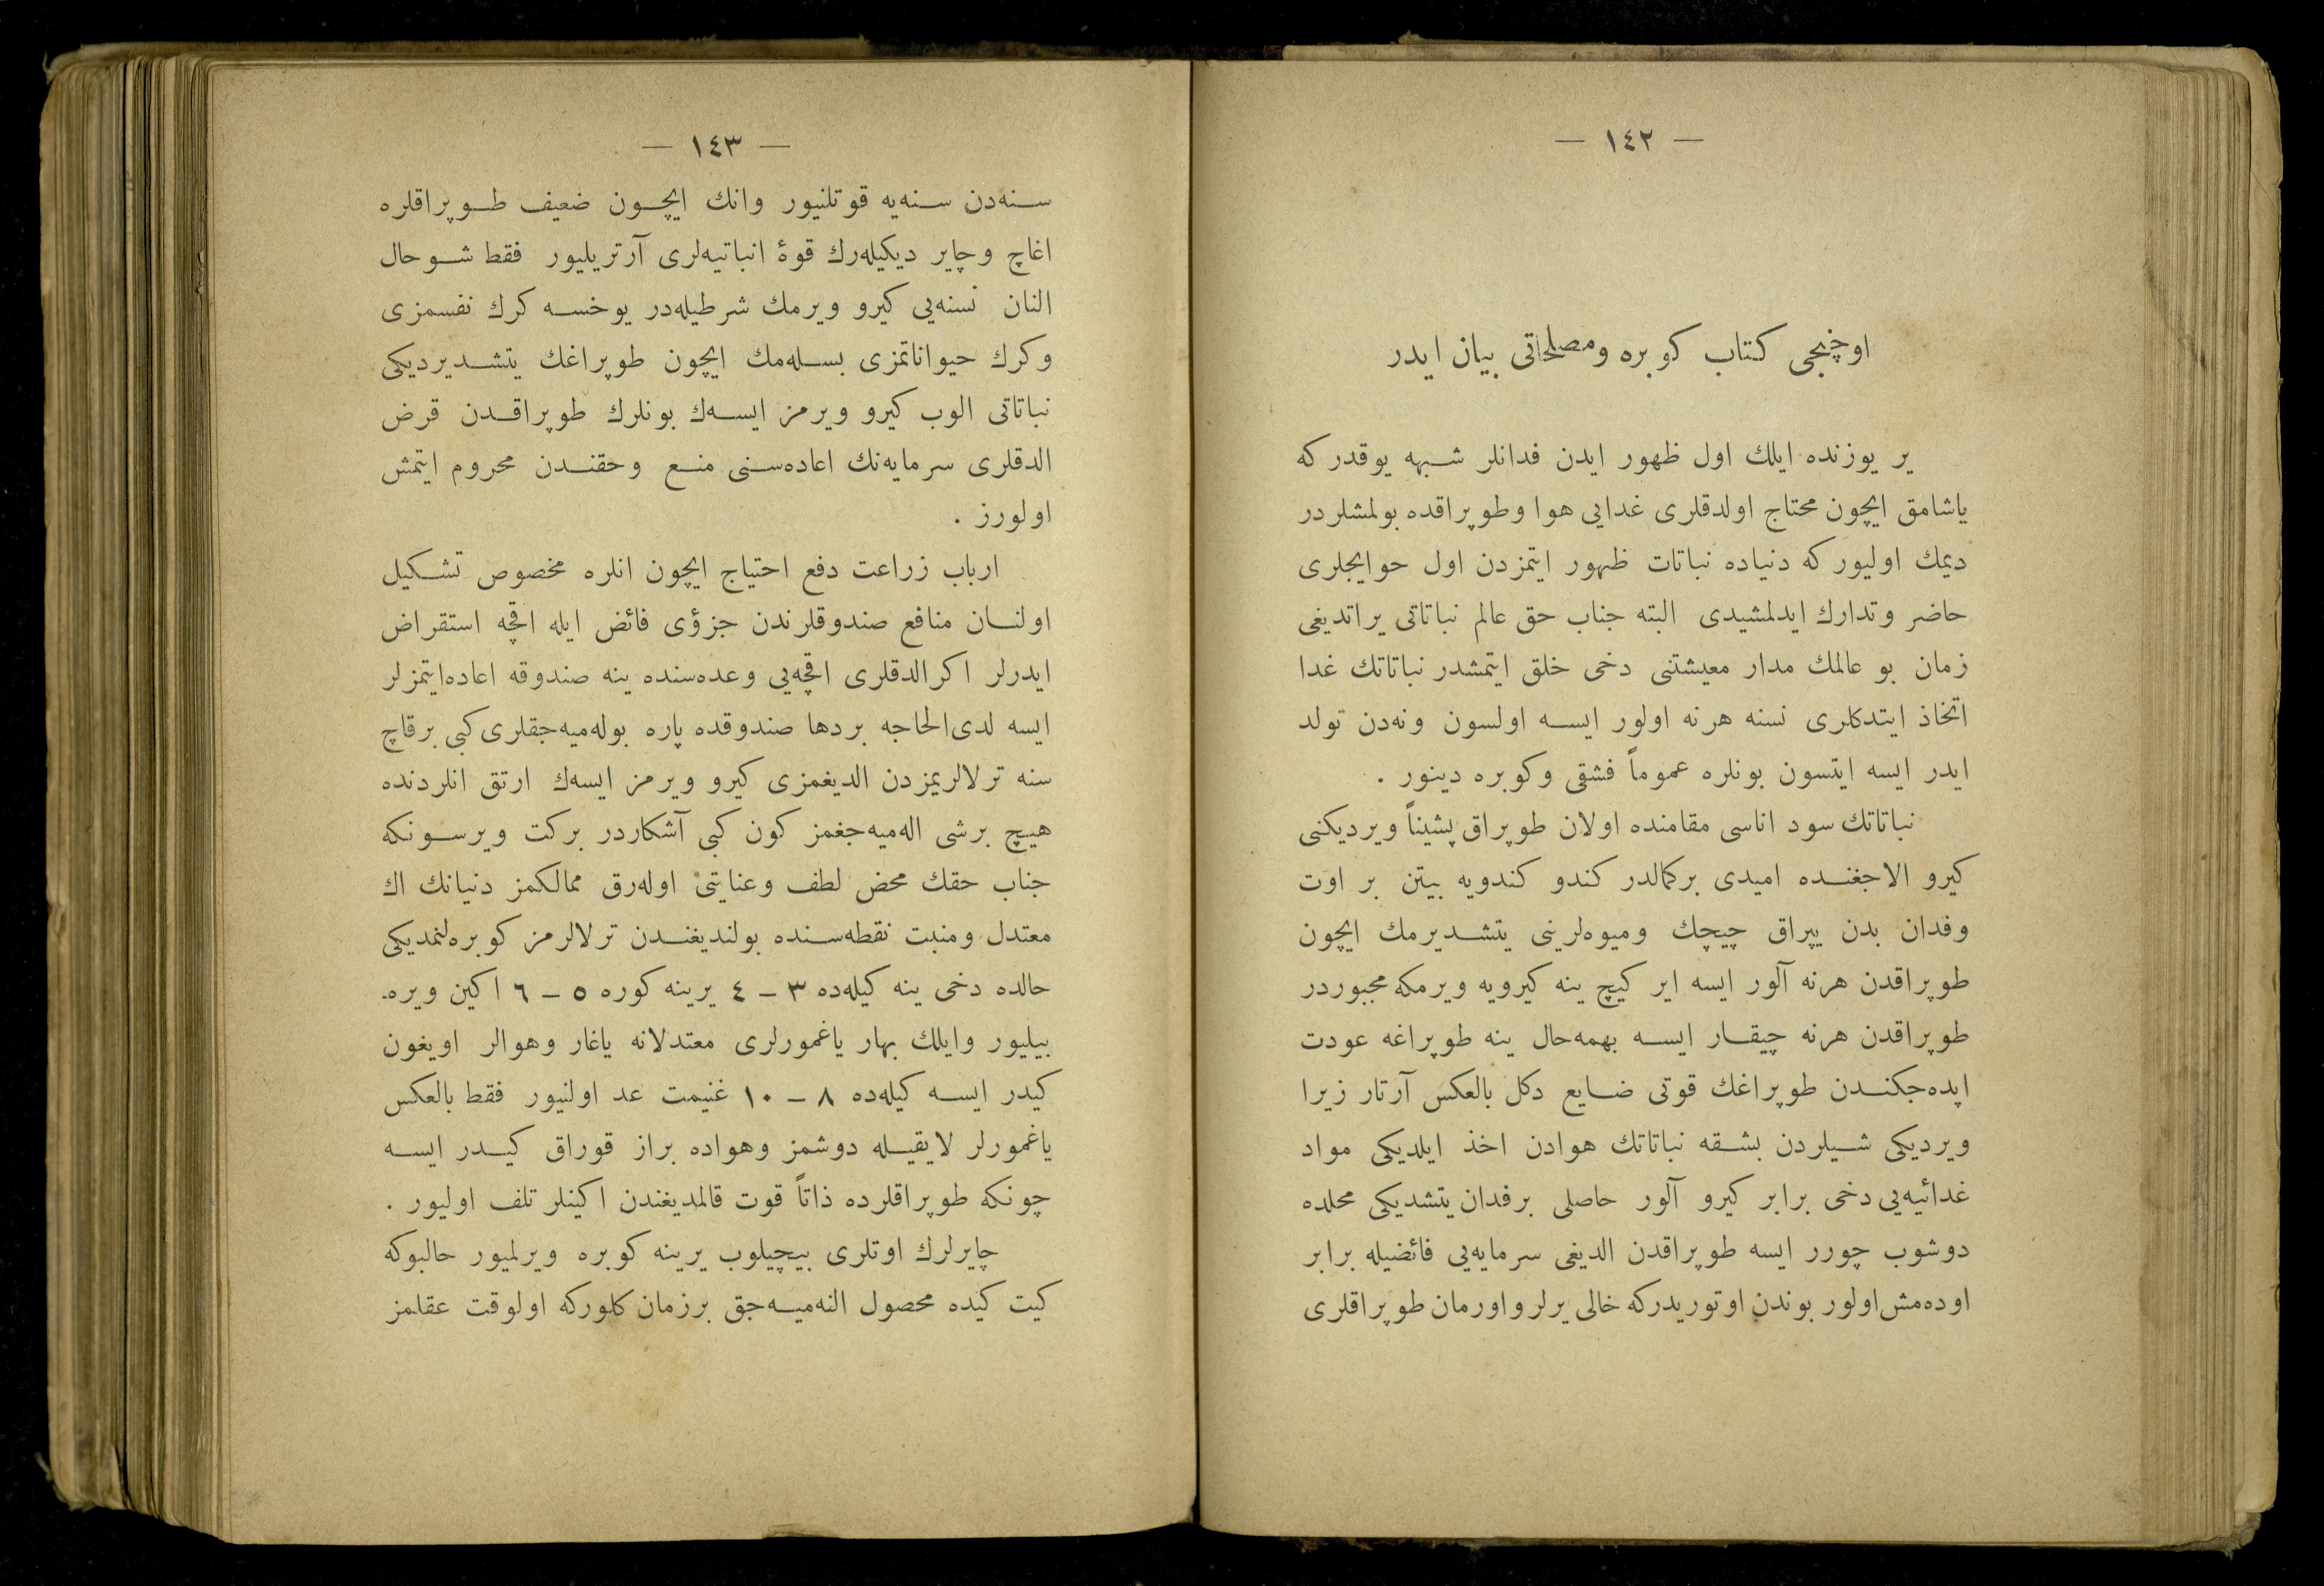 — ١٤٢ —
اوچنجی كتاب كوبره ومصلحاتی بیان ایدر
یر یوزنده ایلك اول ظهور ایدن فدانلر شبهه یوقدركه
یاشامق ایچون محتاج اولدقلری غدایی هوا وطوپراقده بولمشلردر
دیمك اولیور كه دنیاده نباتات ظهور ایتمزدن اول حوایجلری
حاضر وتدارك ایدلمشیدی البته جناب حق عالم نباتاتی یراتدیغی
زمان بو عالمك مدار معیشتنی دخی خلق ایتمشدر نباتاتك غدا
اتخاذ ایتدكلری نسنه هرنه اولور ایسه اولسون ونه‌دن تولد
ایدر ایسه ایتسون بونلره عموماً فشقی وكوبره دینور .
نباتاتك سود اناسی مقامنده اولان طوپراق پشیناً ویردیكنی
كیرو الاجغنده امیدی بركمالدر كندو كندویه بیتن بر اوت
وفدان بدن یپراق چیچك ومیوه‌لرینی یتشدیرمك ایچون
طوپراقدن هرنه آلور ایسه ایر كیچ ینه كیرویه ویرمكه مجبوردر
طوپراقدن هرنه چیقار ایسه بهمه‌حال ینه طوپراغه عودت
ایده‌جكندن طوپراغك قوتی ضایع دكل بالعكس آرتار زیرا
ویردیكی شیلردن بشقه نباتاتك هوادن اخذ ایلدیكی مواد
غدائیه‌یی دخی برابر كیرو آلور حاصلی برفدان یتشدیكی محلده
دوشوب چورر ایسه طوپراقدن الدیغی سرمایه‌یی فائضیله برابر
اوده‌مش اولور بوندن اوتوریدركه خالی یرلر واورمان طوپراقلری
— ١٤٣ —
سنه‌دن سنه‌یه قوتلنیور وانك ایچون ضعیف طوپراقلره
اغاچ وچایر دیكیله‌رك قوۀ انباتیه‌لری آرتریلیور فقط شو حال
النان نسنه‌یی كیرو ویرمك شرطیله‌در یوخسه كرك نفسمزی
وكرك حیواناتمزی بسله‌مك ایچون طوپراغك یتشدیردیكی
نباتاتی الوب كیرو ویرمز ایسه‌ك بونلرك طوپراقدن قرض
الدقلری سرمایه‌نك اعاده‌سنی منع وحقندن محروم ایتمش
اولورز .
ارباب زراعت دفع احتیاج ایچون انلره مخصوص تشكیل
اولنان منافع صندوقلرندن جزؤی فائض ایله اقچه استقراض
ایدرلر اكرالدقلری اقچه‌یی وعده‌سنده ینه صندوقه اعاده‌ایتمزلر
ایسه لدی‌الحاجه بردها صندوقده پاره بوله‌میه‌جقلری كبی برقاچ
سنه ترلالریمزدن الدیغمزی كیرو ویرمز ایسه‌ك ارتق انلردنده
هیچ برشی اله‌میه‌جغمز كون كبی آشكاردر بركت ویرسونكه
جناب حقك محض لطف وعنایتی اوله‌رق ممالكمز دنیانك اك
معتدل ومنبت نقطه‌سنده بولندیغندن ترلالرمز كوبره‌لنمدیكی
حالده دخی ینه كیله‌ده ٣ – ٤ یرینه كوره ٥ – ٦ اكین ویره‌-
بیلیور وایلك بهار یاغمورلری معتدلانه یاغار وهوالر اویغون
كیدر ایسه كیله‌ده ٨ – ١٠ غنیمت عد اولنیور فقط بالعكس
یاغمورلر لایقیله دوشمز وهواده براز قوراق كیدر ایسه
چونكه طوپراقلرده ذاتاً قوت قالمدیغندن اكینلر تلف اولیور .
چایرلرك اوتلری بیچیلوب یرینه كوبره ویرلمیور حالبوكه
كیت كیده محصول النه‌میه‌جق برزمان كلوركه اولوقت عقلمز